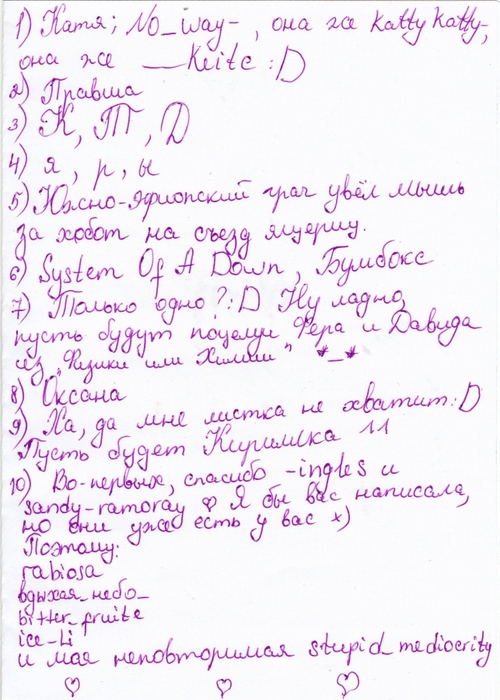 1) Катя; No_way-, она же Katty Katty-,
она же ___Keite :D
2) Правша
3) К, Т, Д
4) я, р, ы
5) Южно-эфиопский грач увёл мышь
за хобот на съезд ящериц.
6) System Of A Down, Бумбокс
7) Только одно?:D Ну ладно,
пусть будут поцелуи Фера и Давида
из "Физики или Химии" *_*
8) Оксана
9) Ха, да мне листка не хватит :D
Пусть будет Кирилка 11
10) Во-первых, спасибо -ingles и
sandy-ramoray ♡ Я бы вас написала,
но они уже есть у вас х)
Поэтому:
rabiosa
вдыхая_небо_
bitter_fruite
ice-Li
и мая неповторимая stupid mediocrity
♡ ♡ ♡